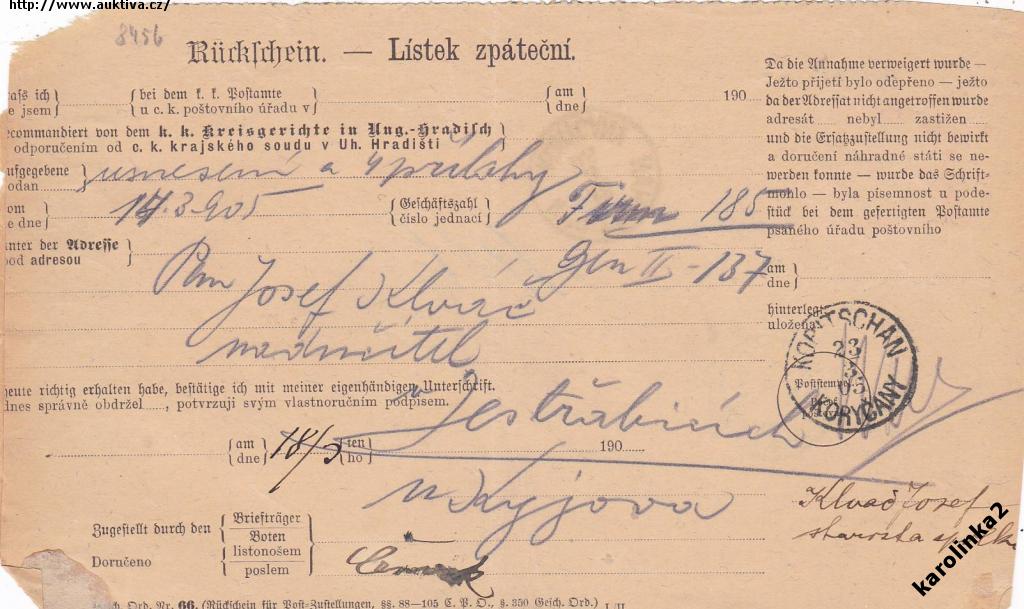 http://www.auktiva.cz/
8456
Rückschein. — Lístek zpáteční.
ass ich
e jsem
bei dem k. k. Postamte
u c. k. poštovního úřadu v
am
dne
190
ecommandiert von dem k. k. Kreisgerichte in Ung.-Hradisch
odporučením od c. k. krajského soudu v Uh. Hradišti
ufgegebene
odan
usnesení a 4 přílohy
om
e dne
14.3.905
Geschäftszahl
číslo jednací
Firm 185
unter der Adresse
pod adresou
Gen II - 137
Pan Josef Klvač
nadučitel
heute richtig erhalten habe, bestätige ich mit meiner eigenhändigen Unterschrift.
dnes správně obdržel ....., potvrzuji svým vlastnoručním podpisem.
v Jestřabicích
am
dne
18/3
ten
ho
190
u Kyjova
Zugestellt durch den
Doručeno
Briefträger
Boten
listonošem
poslem
Da die Annahme verweigert wurde —
Ježto přijetí bylo odepřeno — ježto
da der Adressat nicht angetroffen wurde
adresát ..... nebyl ..... zastižen
und die Ersatzzustellung nicht bewirkt
a doručení náhradné státi se ne-
werden konnte — wurde das Schrift-
mohlo — byla písemnost u pode-
stück bei dem gefertigten Postamte
psaného úřadu poštovního
am
dne
hinterlegt
uložena
KORITSCHAN
23
KORYČANY
Poststempel
poštovní
Klvač Josef
starosta
karolinka2
Ord. Nr. 66. (Rückschein für Post-Zustellungen, §§. 88—105 C. P. O., §. 350 Gesch. Ord.)